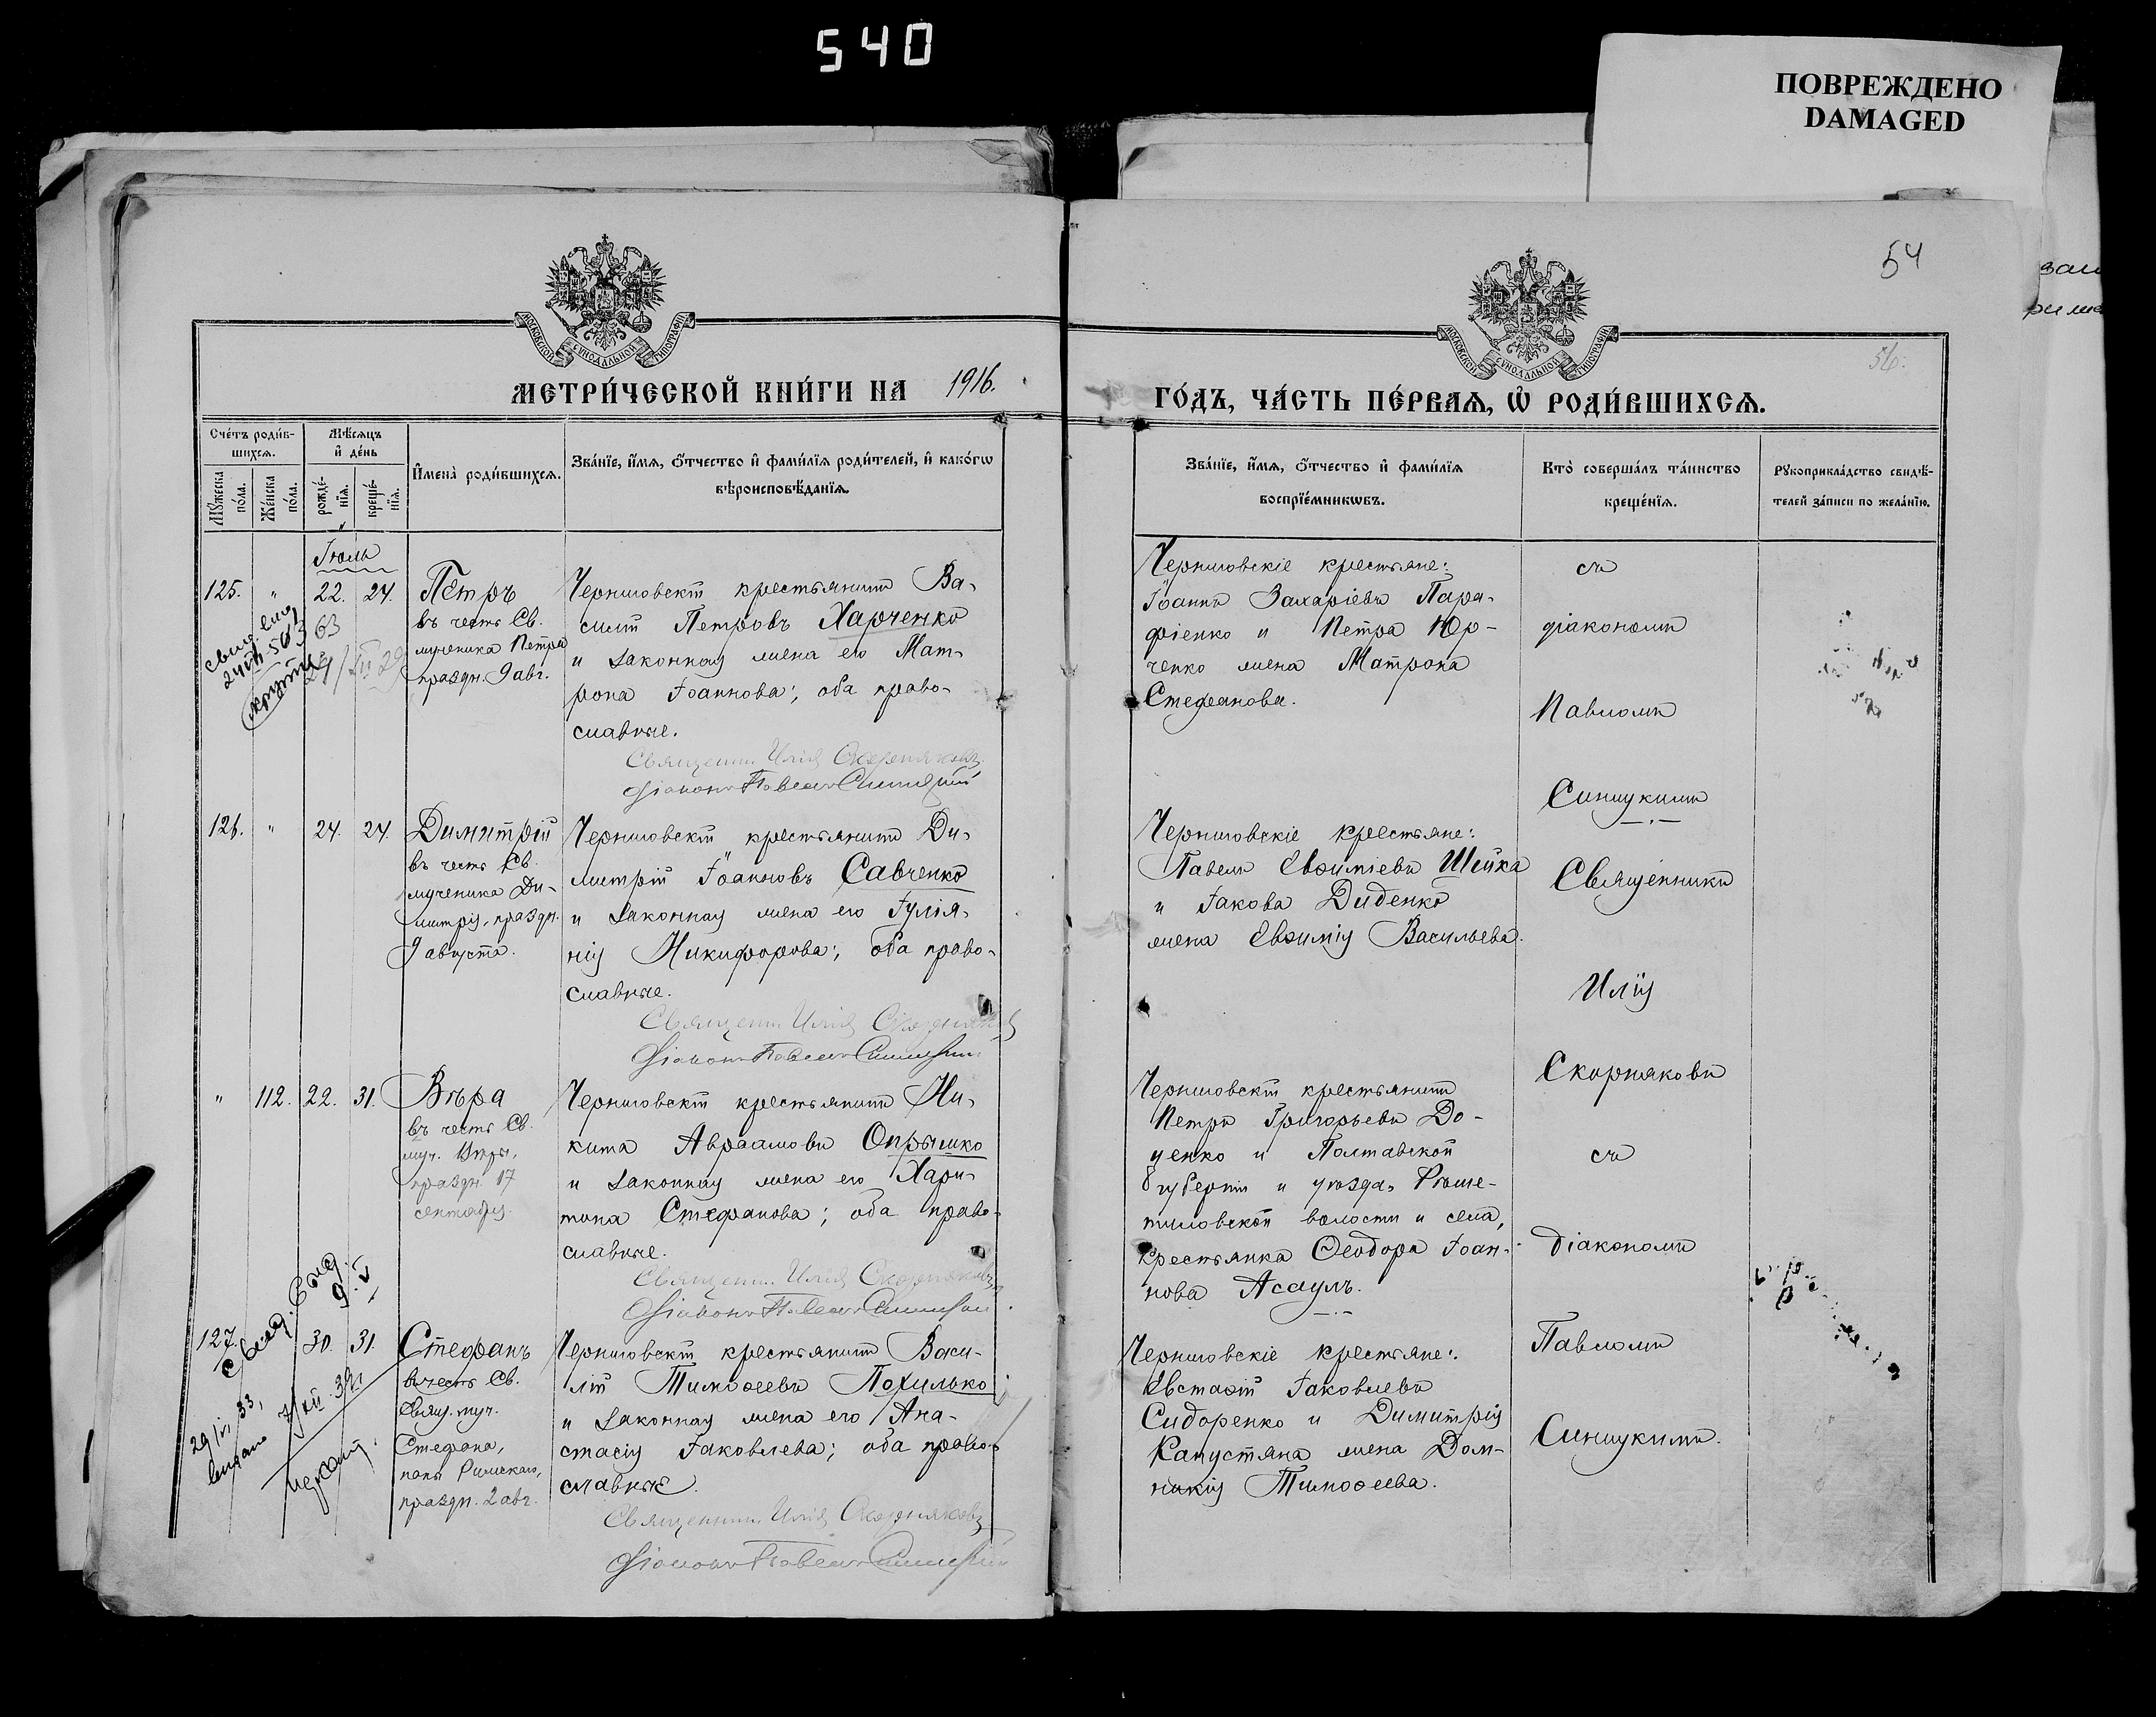 540
ПОВРЕЖДЕНО
DAMAGED
54
56.
МОСКОВСКОЙ СѴНОДАЛЬНОЙ ТИПОГРАФІИ
МОСКОВСКОЙ СѴНОДАЛЬНОЙ ТИПОГРАФІИ
МЕТРИ́ЧЕСКОЙ КНИ́ГИ НА 1916.
ГО́ДЪ, ЧА́СТЬ ПЕ́РВАѦ, Ѡ҆ РОДИ́ВШИХСѦ.
Сче́тъ роди́в-
шихсѧ.
Мѣ́сѧцъ
и҆ де́нь
Мꙋ́жеска
по́ла.
Же́нска
по́ла.
рожде́-
нїѧ.
креще́-
нїѧ.
И҆мена̀ роди́вшихсѧ.
Зва́нїе, и҆́мѧ, ѻ҆́тчество и҆ фами́лїѧ роди́телей, и҆ како́гѡ
вѣроисповѣ́данїѧ.
Зва́нїе, и҆́мѧ, ѻ҆́тчество и҆ фами́лїѧ
воспрїе́мникѡвъ.
Кто̀ соверша́лъ та́инство
креще́нїѧ.
Рꙋкоприкла́дство свидѣ́-
телей за́писи по жела́нїю.
Іюль
125. " 22. 24.
Петръ
въ честь Св.
мученика Петра
праздн. 9 авг.
Черниговскій крестьянинъ Ва-
силій Петровъ Харченко
и законная жена его Мат-
рона Іоаннова; оба право-
славные.
Священн. Илія Скорняковъ
Діаконъ Павелъ Синицкій
Черниговскіе крестьяне:
Іоаннъ Захаріевъ Пара-
фіенко и Петра Юр-
ченко жена Матрона
Стефанова.
126. " 24. 24.
Димитрій
въ честь Св.
мученика Ди-
митрія, праздн.
9 августа.
Черниговскій крестьянинъ Ди-
митрій Іоанновъ Савченко
и законная жена его Іулія-
нія Никифорова; оба право-
славные.
Священн. Илія Скорняковъ
Діаконъ Павелъ Синицкій
Черниговскіе крестьяне:
Павелъ Евѳиміевъ Шейка
и Іакова Диденко
жена Евѳимія Васильева.
" 112. 22. 31.
Вѣра
въ честь Св.
муч. Вѣры,
праздн. 17
сентября.
Черниговскій крестьянинъ Ни-
кита Авраамовъ Опрышко
и законная жена его Хари-
тина Стефанова; оба право-
славные.
Священн. Илія Скорняковъ
Діаконъ Павелъ Синицкій
Черниговскій крестьянинъ
Петръ Григорьевъ До-
ценко и Полтавской
губерніи и уѣзда, Рѣше-
тиловской волости и села,
крестьянка Ѳеодора Іоан-
нова Асаулъ.
127. 30. 31.
Стефанъ
въ честь Св.
Свящ. муч.
Стефана,
папы Римскаго,
праздн. 2 авг.
Черниговскій крестьянинъ Васи-
лій Тимоѳеевъ Похилько
и законная жена его Ана-
стасія Іаковлева; оба право-
славные.
Священникъ Илія Скорняковъ
Діаконъ Павелъ Синицкій
Черниговскіе крестьяне:
Евстаѳій Іаковлевъ
Сидоренко и Димитрія
Капустяна жена Дом-
никія Тимоѳеева.
Священникъ
Илія
Скорняковъ
съ
діакономъ
Павломъ
Синицкимъ.
съ
діакономъ
Павломъ
Синицкимъ